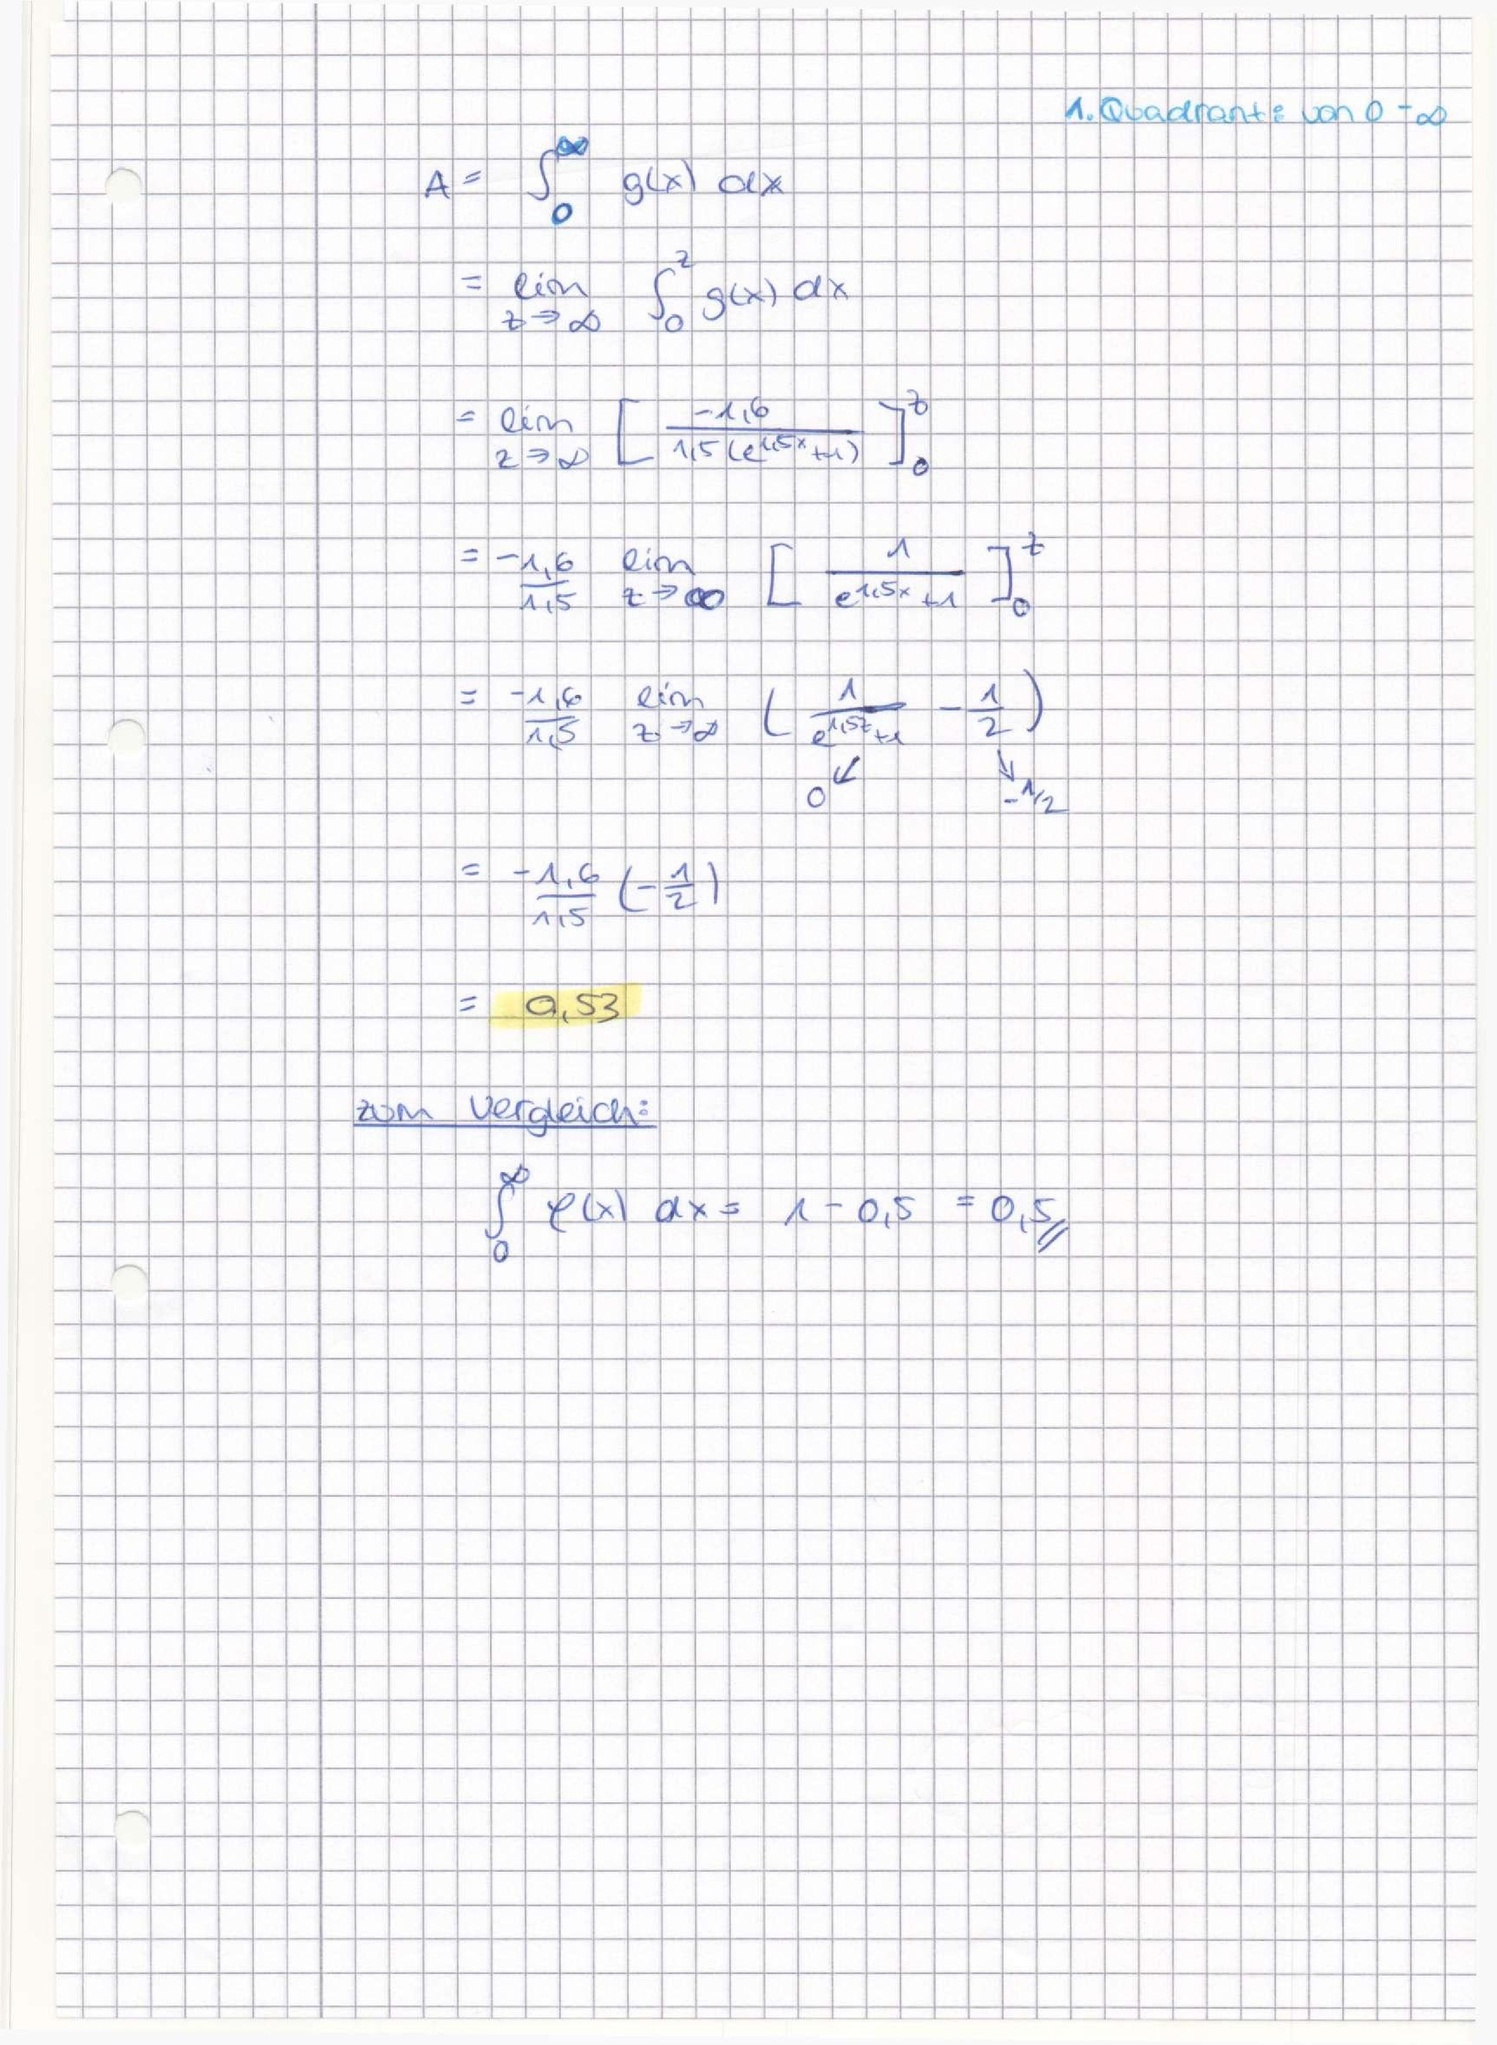 1. Quadrant: von 0 - ∞
A = ∫₀^∞ g(x) dx
= lim z→∞ ∫₀^z g(x) dx
= lim z→∞ [ -1,6 / 1,5 (e^1,5x +1) ]₀^z
= -1,6/1,5 lim z→∞ [ 1 / e^1,5x +1 ]₀^z
= -1,6/1,5 lim z→∞ ( 1 / e^1,5z +1 - 1/2 )
↙ ↘
0 -1/2
= -1,6/1,5 (- 1/2)
= 0,53
zum Vergleich:
∫₀^∞ φ(x) dx = 1 - 0,5 = 0,5